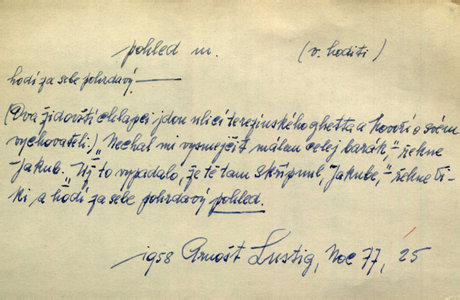 pohled m. (v. hoditi)
hodí za sebe pohrdavý —
(Dva židovští chlapci jdou ulicí terezínského ghetta a hovoří o svém
vychovateli.) „Nechal mi vysmejčit málem celej barák,“ – řekne
Jakub. „Už to vypadalo, že tě tam skřípnul, Jakube,“ – řekne Vi-
ki a hodí za sebe pohrdavý pohled.
1958 Arnošt Lustig, Noc 77, 25